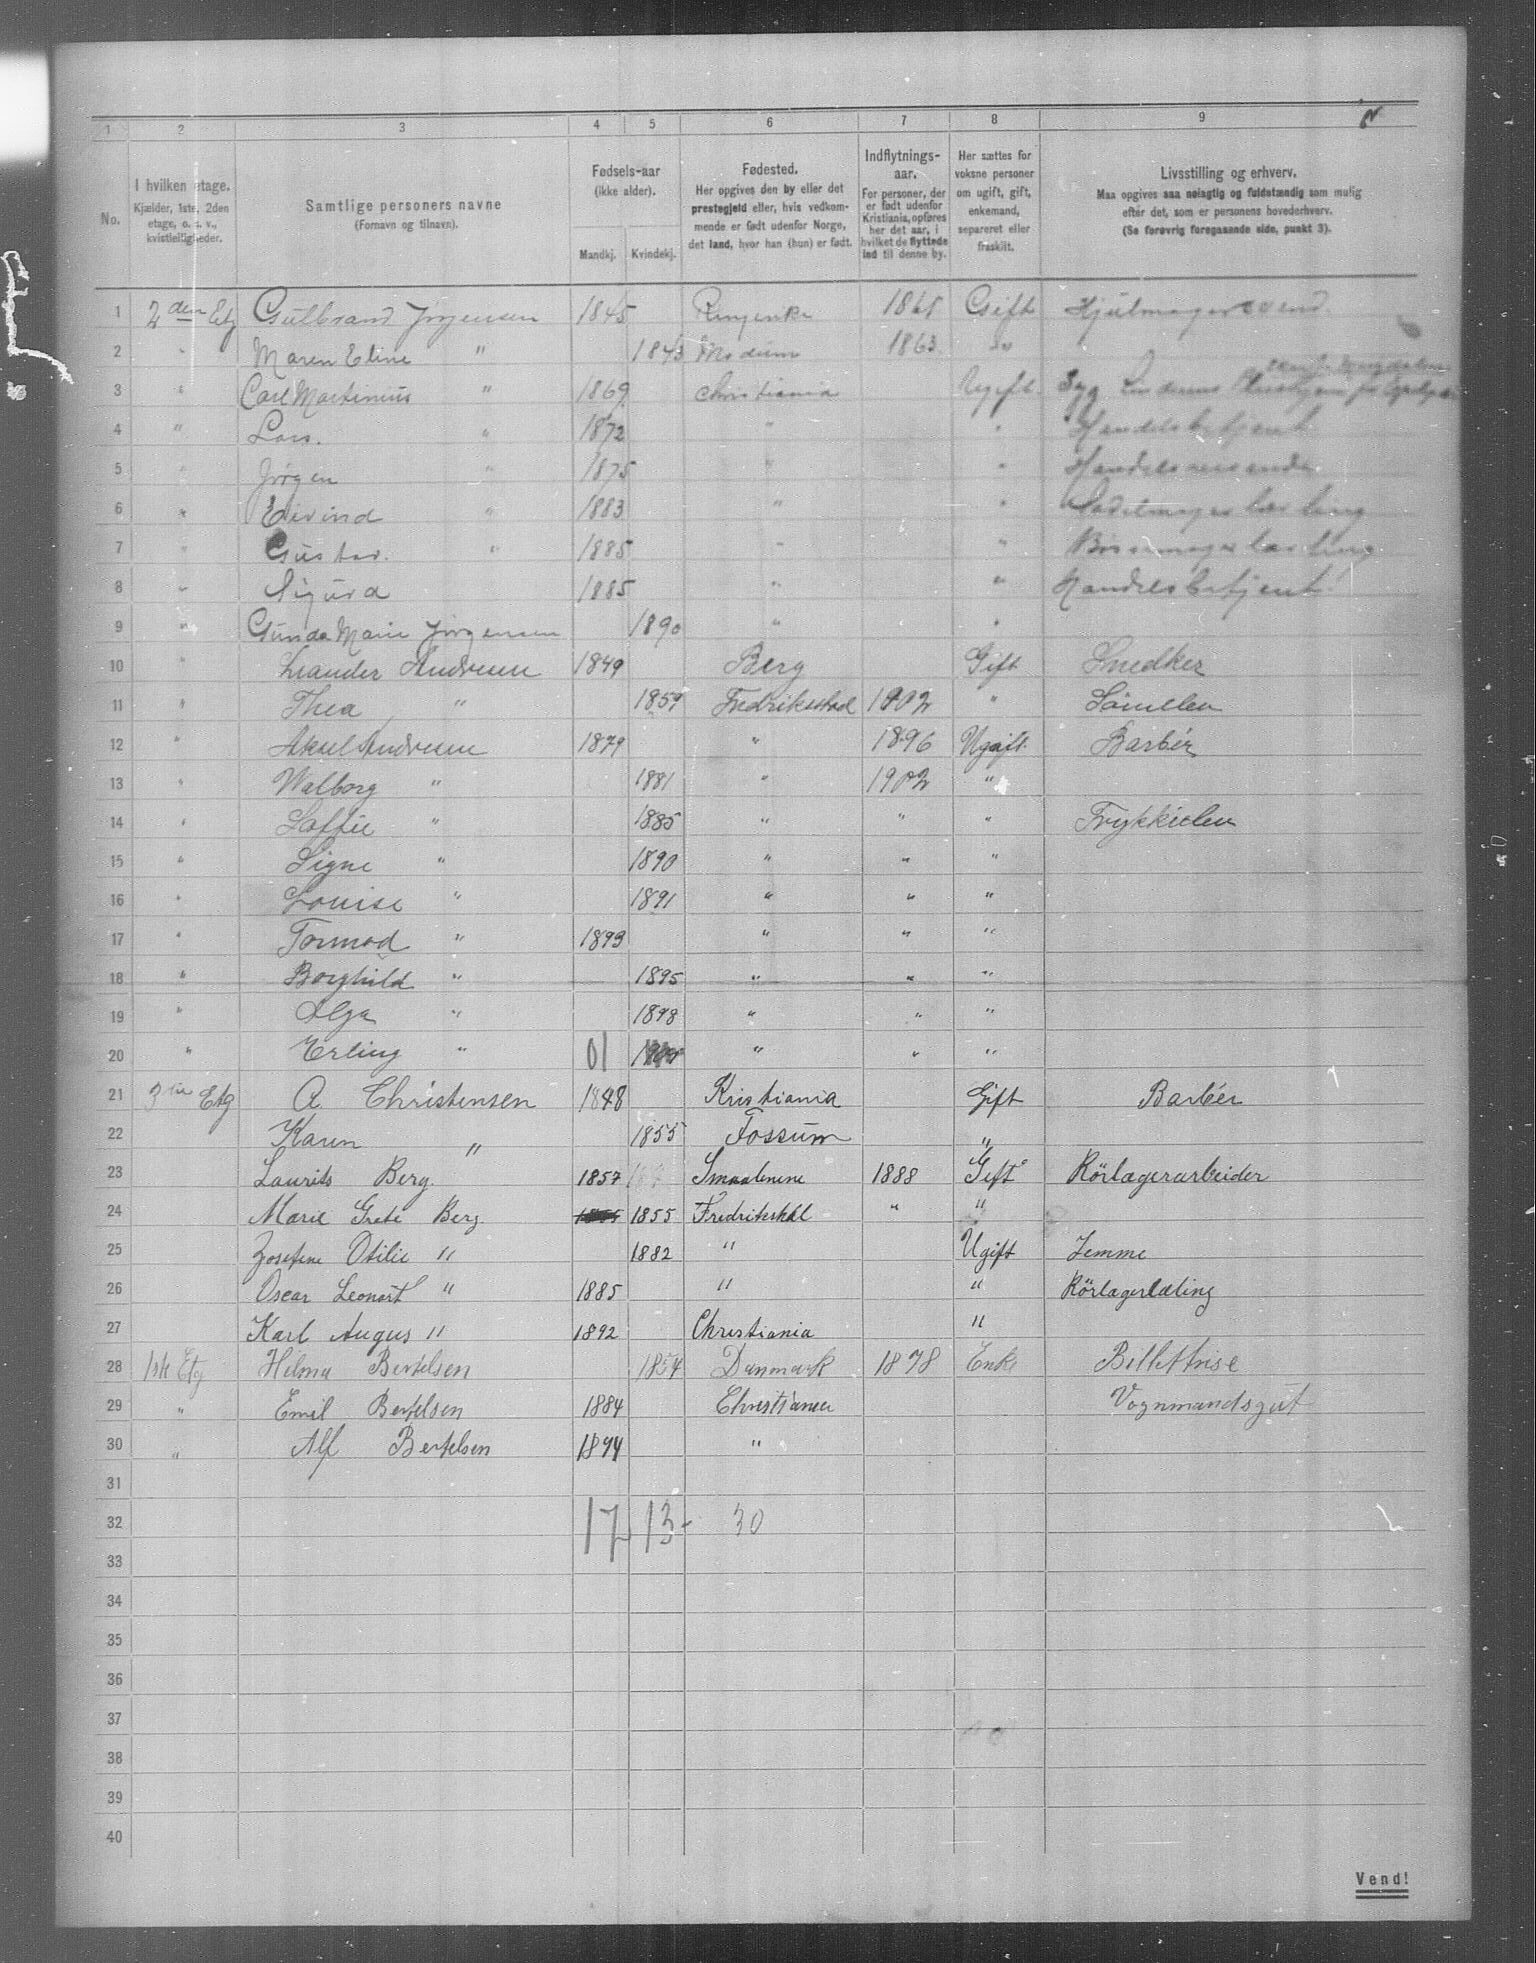 1 2 3 4 5 6 7 8 9
No. I hvilken etage. Kjælder, 1ste, 2den etage, o. s. v., kvistleiligheder. Samtlige personers navne (Fornavn og tilnavn). Fødsels-aar (ikke alder). Mandkj. Kvindekj. Fødested. Her opgives den by eller det prestegjeld eller, hvis vedkommende er født udenfor Norge, det land, hvor han (hun) er født. Indflytnings-aar. For personer, der er født udenfor Kristiania, opføres her det aar, i hvilket de flyttede ind til denne by. Her sættes for voksne personer om ugift, gift, enkemand, separeret eller fraskilt. Livsstilling og erhverv. Maa opgives saa nøiagtig og fuldstændig som mulig efter det, som er personens hovederhverv. (Se forøvrig foregaaende side, punkt 3).
1 2den Etg Gulbrand Jørgensen 1845 Ringerike Gift Hjulmagersvend
2 " Maren Eline " 1843 Modum 1863 "
3 " Carl Martinius " 1869 Christiania Ugift Syg
4 " Lars. " 1872 " " Handelsbetjent
5 " Jørgen " 1875 " " Handelsreisende
6 " Eivind " 1883 " " Sadelmagerlærling
7 " Gustav. " 1885 " " Bøssemagerlærling
8 " Sigurd 1885 " " Handelsbetjent
9 " Gunda Marie Jørgensen 1890 " "
10 " Leander Andresen 1849 Berg Gift Snedker
11 " Thea " 1859 Fredrikstad 1902 "
12 " Aksel Andresen 1879 " 1896 Ugift. Barbér
13 " Walborg " 1881 " 1902 "
14 " Soffie " 1885 " " " Trykkielev
15 " Signe " 1890 " " "
16 " Louise " 1891 " " "
17 " Tormod " 1893 " " "
18 " Borghild " 1895 " " "
19 " Olga " 1898 " " "
20 " Erling " 01 " " "
21 3die Etg A. Christensen 1848 Kristiania Gift Barbér
22 Karen " 1855 Fossum "
23 Laurits Berg. 1857 Smaalenene 1888 Gift Rörlægerarbeider
24 Marie Grete Berg 1855 Fredrikshl " "
25 Josefine Otilie " 1882 " Ugift Jemme
26 Oscar Leonart " 1885 " " Rörlægerlæling
27 Karl Augus " 1892 Christiania "
28 1ste Etg Helma Bertelsen 1854 Danmark 1878 Enke Billettrise
29 " Emil Bertelsen 1884 Christiania Vognmandsgut
30 " Alf Bertelsen 1894 "
31
32 17 13 - 30
33
34
35
36
37
38
39
40
Vend!